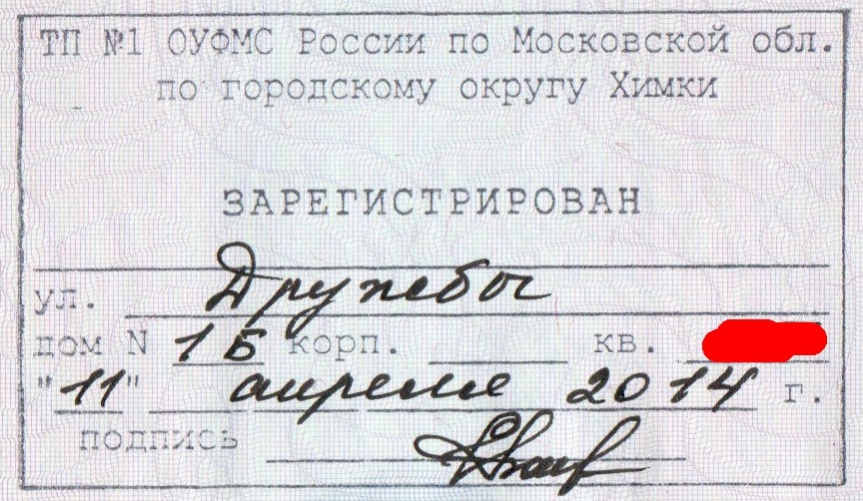 ТП №1 ОУФМС России по Московской обл.
по городскому округу Химки
ЗАРЕГИСТРИРОВАН
ул. Дружбы
дом N 1Б корп. кв.
"11" апреля 2014 г.
подпись